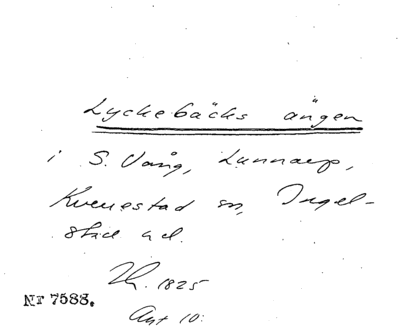 Lyckebäcks ängen
i S. Vång, Lunnarp,
Kverrestad sn, Ingel-
stad hd.
Lh. 1825
Akt 10.
Nr 7588.